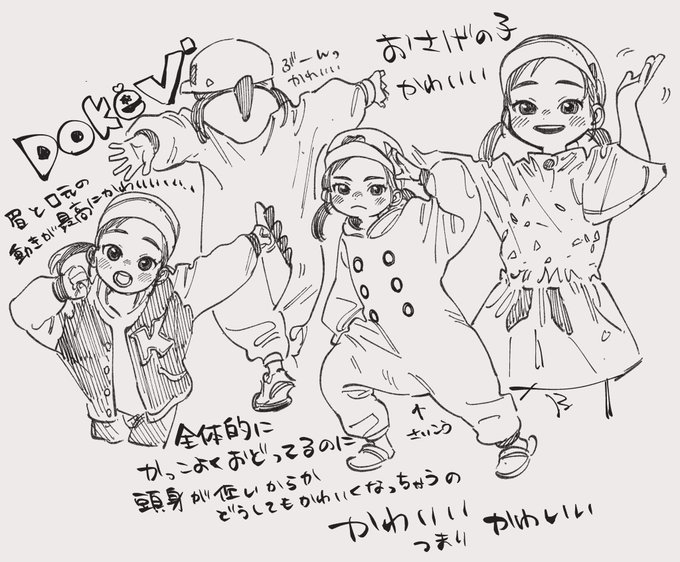 DokeV
ぶーんっ
かわいい
おさげの子
かわいい
眉と口元の
動きが最高にかわいいいい、、
K
↑
さいこう
全体的に
かっこよくおどってるのに
頭身が低いからか
どうしてもかわいくなっちゃうの
かわいい
つまり
かわいい